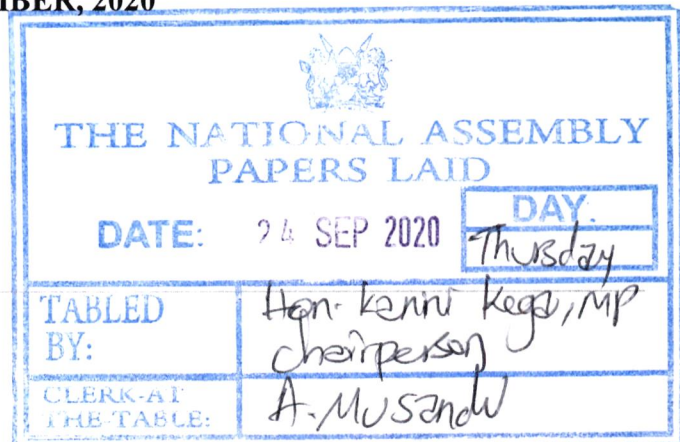 MBER, 2020
THE NATIONAL ASSEMBLY
PAPERS LAID
DATE: 24 SEP 2020
DAY.
Thursday
TABLED BY:
Hon. Kanini Kega, MP
Chairperson
CLERK-AT THE-TABLE:
A. Musandu